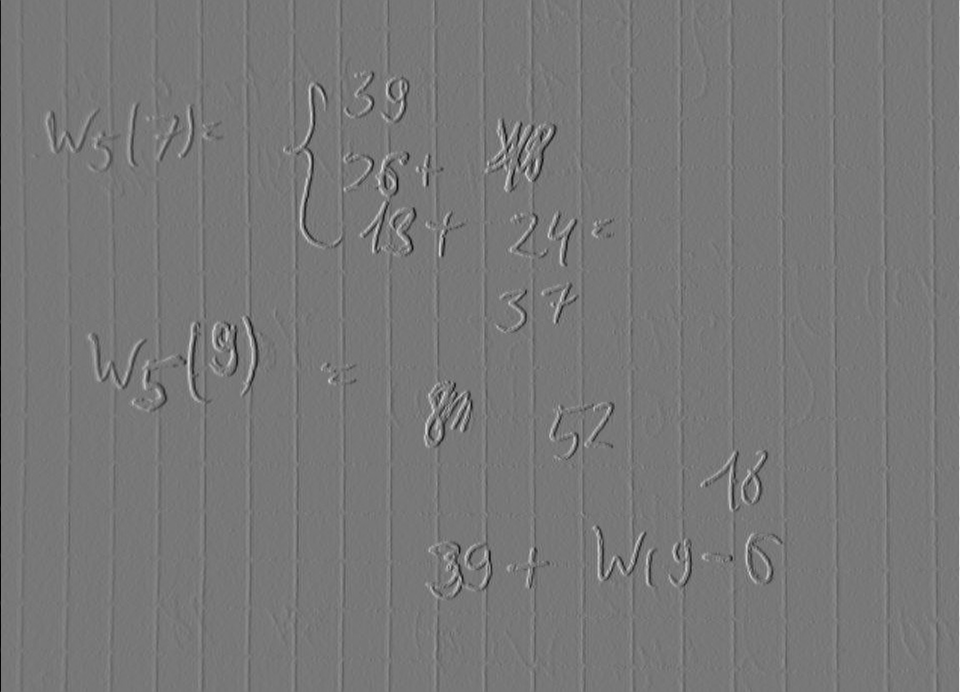 W5(7)= { 39
26+
13+ 24=
37
W5(9) =
52
18
39 + W(9-6